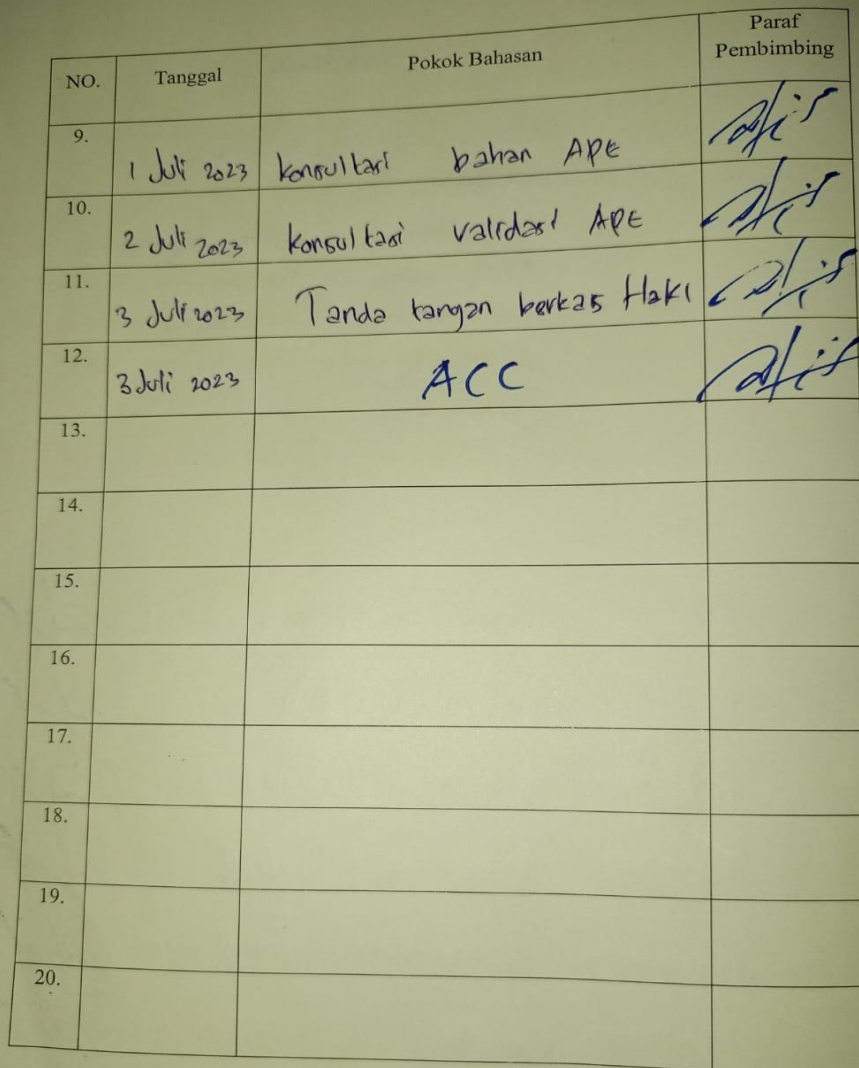 NO. Tanggal Pokok Bahasan Paraf Pembimbing
9. 1 Juli 2023 konsultasi bahan APE
10. 2 Juli 2023 konsultasi validasi APE
11. 3 Juli 2023 Tanda tangan berkas HaKI
12. 3 Juli 2023 ACC
13.
14.
15.
16.
17.
18.
19.
20.